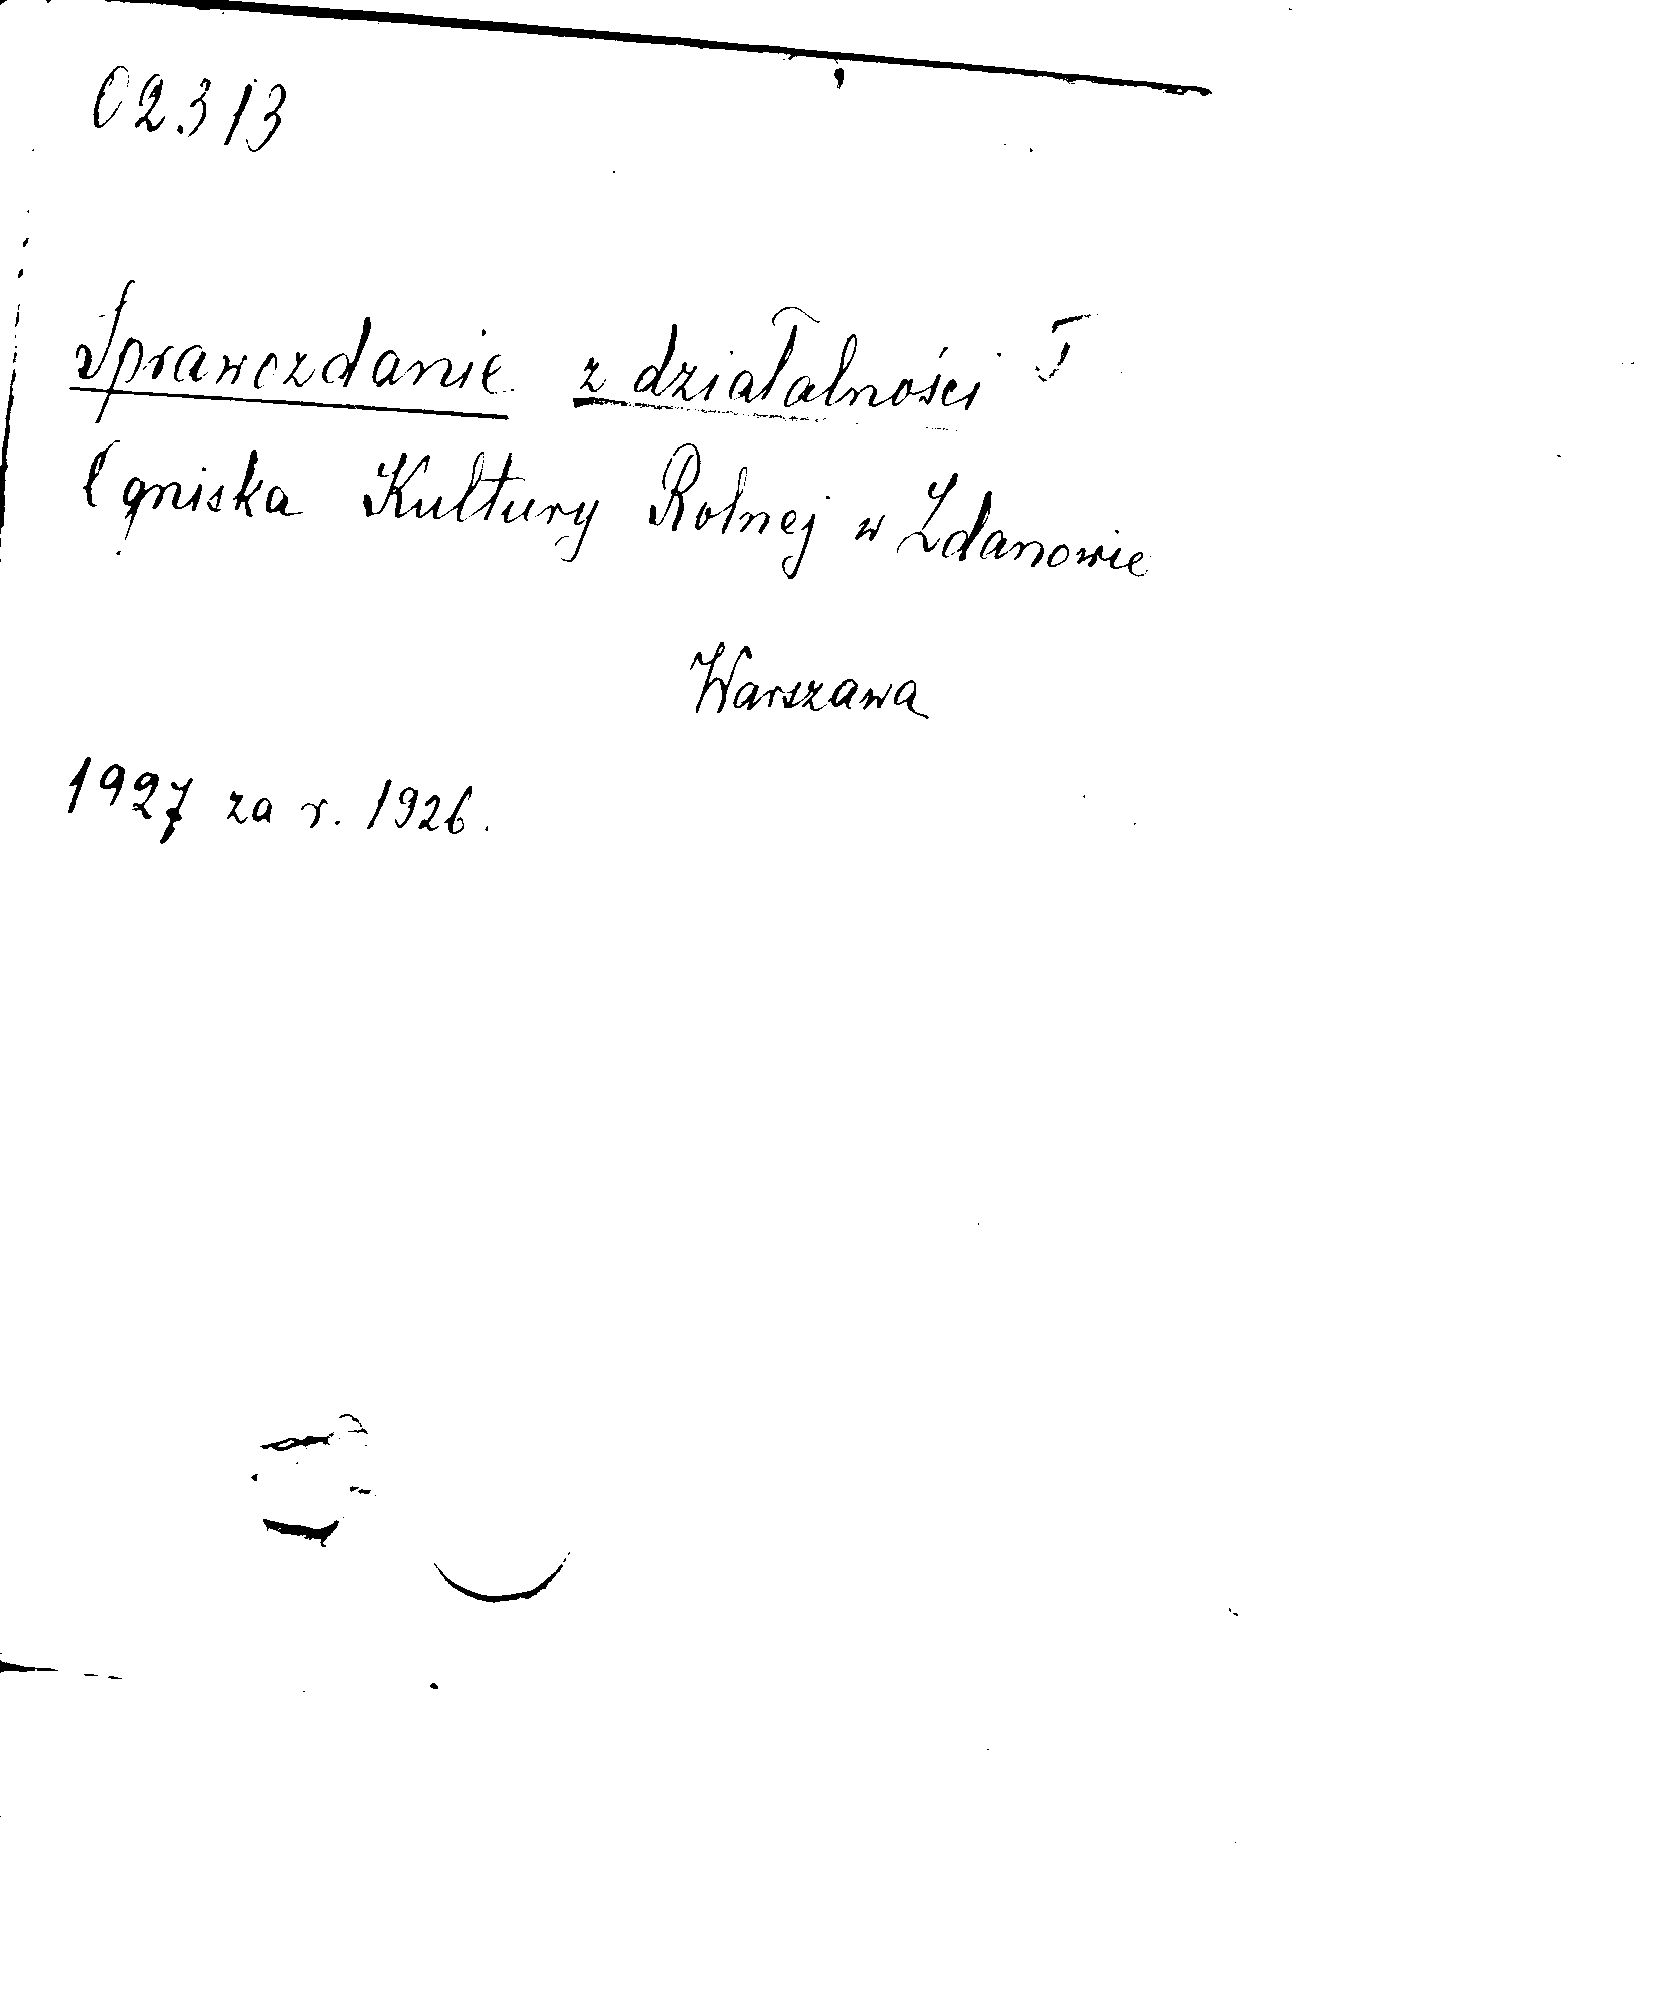 02313
Sprawozdanie z działalności I
Ogniska Kultury Rolnej w Zdanowie
Warszawa
1927 za r. 1926.